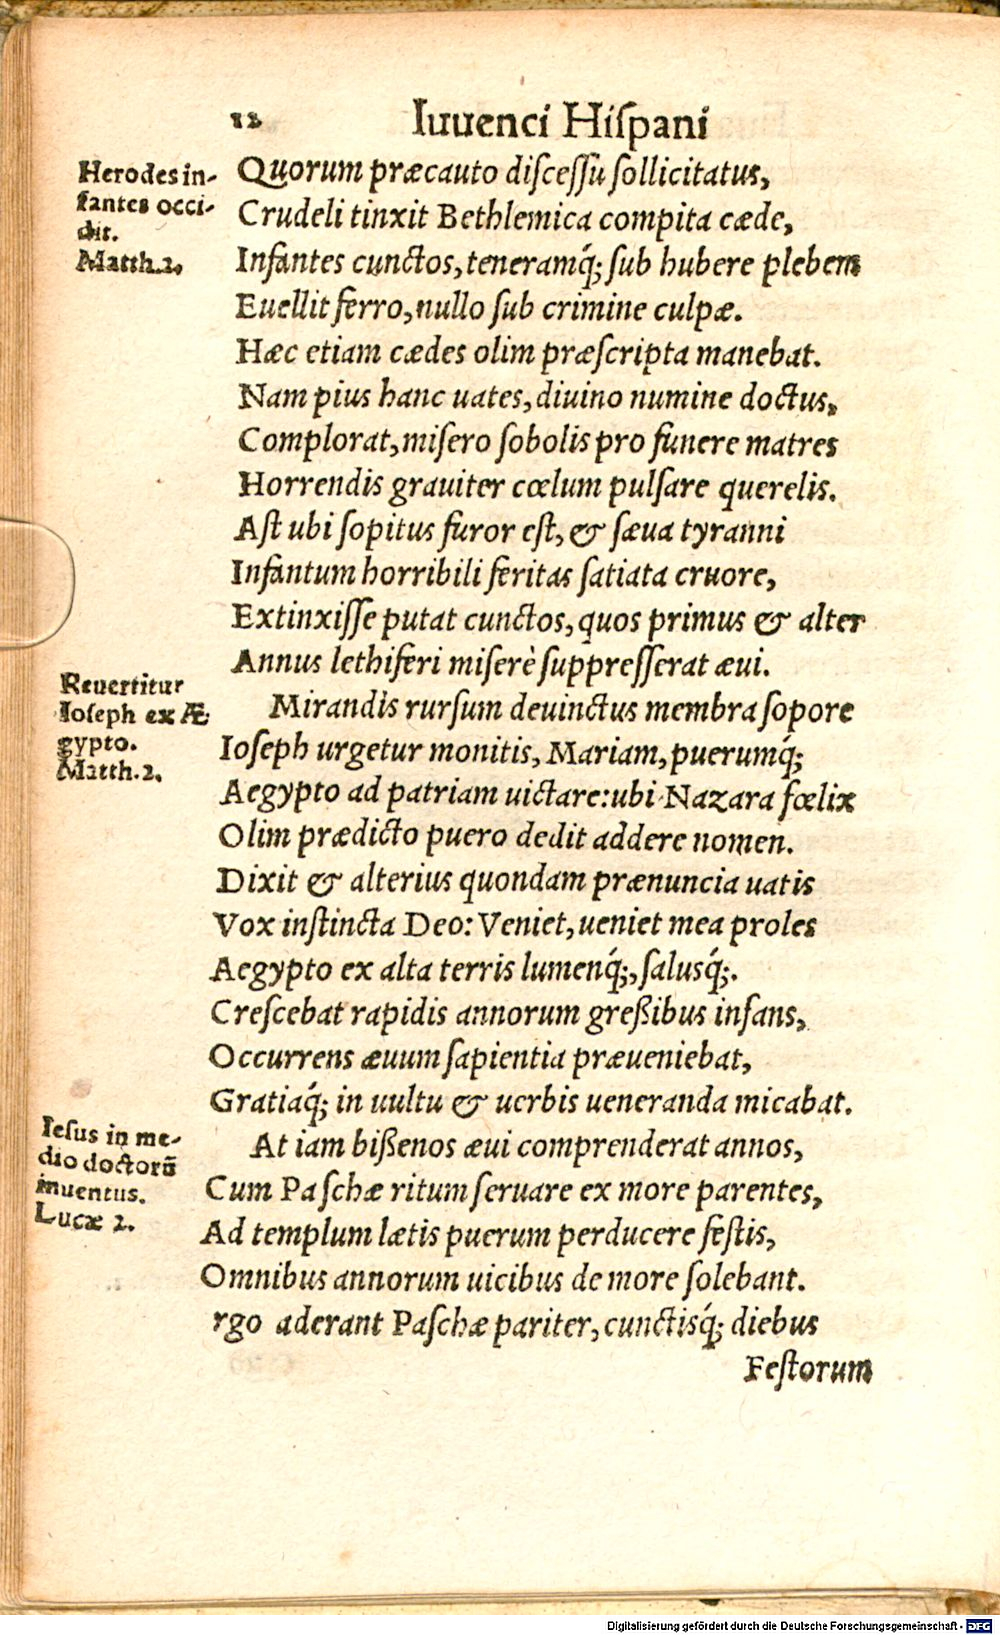 12 Iuuenci Hiſpani
Herodes in-
fantes occi-
dit.
Matth.2.
Quorum præcauto diſceſſu ſollicitatus,
Crudeli tinxit Bethlemica compita cæde,
Infantes cunctos, teneramq́; ſub hubere plebem
Euellit ferro, nullo ſub crimine culpæ.
Hæc etiam cædes olim præſcripta manebat.
Nam pius hanc uates, diuino numine doctus,
Complorat, miſero ſobolis pro funere matres
Horrendis grauiter cœlum pulſare querelis.
Aſt ubi ſopitus furor eſt, & ſæua tyranni
Infantum horribili feritas ſatiata cruore,
Extinxiſſe putat cunctos, quos primus & alter
Annus lethiferi miserè ſuppreſſerat æui.
Reuertitur
Ioſeph ex Æ-
gypto.
Matth.2.
Mirandis rurſum deuinctus membra ſopore
Ioſeph urgetur monitis, Mariam, puerumq́;
Aegypto ad patriam uictare: ubi Nazara fœlix
Olim prædicto puero dedit addere nomen.
Dixit & alterius quondam prænuncia uatis
Vox inſtincta Deo: Veniet, ueniet mea proles
Aegypto ex alta terris lumenq́;, ſalusq́;.
Creſcebat rapidis annorum greßibus infans,
Occurrens æuum ſapientia præueniebat,
Gratiaq́; in uultu & uerbis ueneranda micabat.
Ieſus in me-
dio doctorũ
inuentus.
Lucæ 2.
At iam bißenos æui comprenderat annos,
Cum Paſchæ ritum ſeruare ex more parentes,
Ad templum lætis puerum perducere feſtis,
Omnibus annorum uicibus de more ſolebant.
rgo aderant Paſchæ pariter, cunctisq́; diebus
Feſtorum
Digitalisierung gefördert durch die Deutsche Forschungsgemeinschaft - DFG